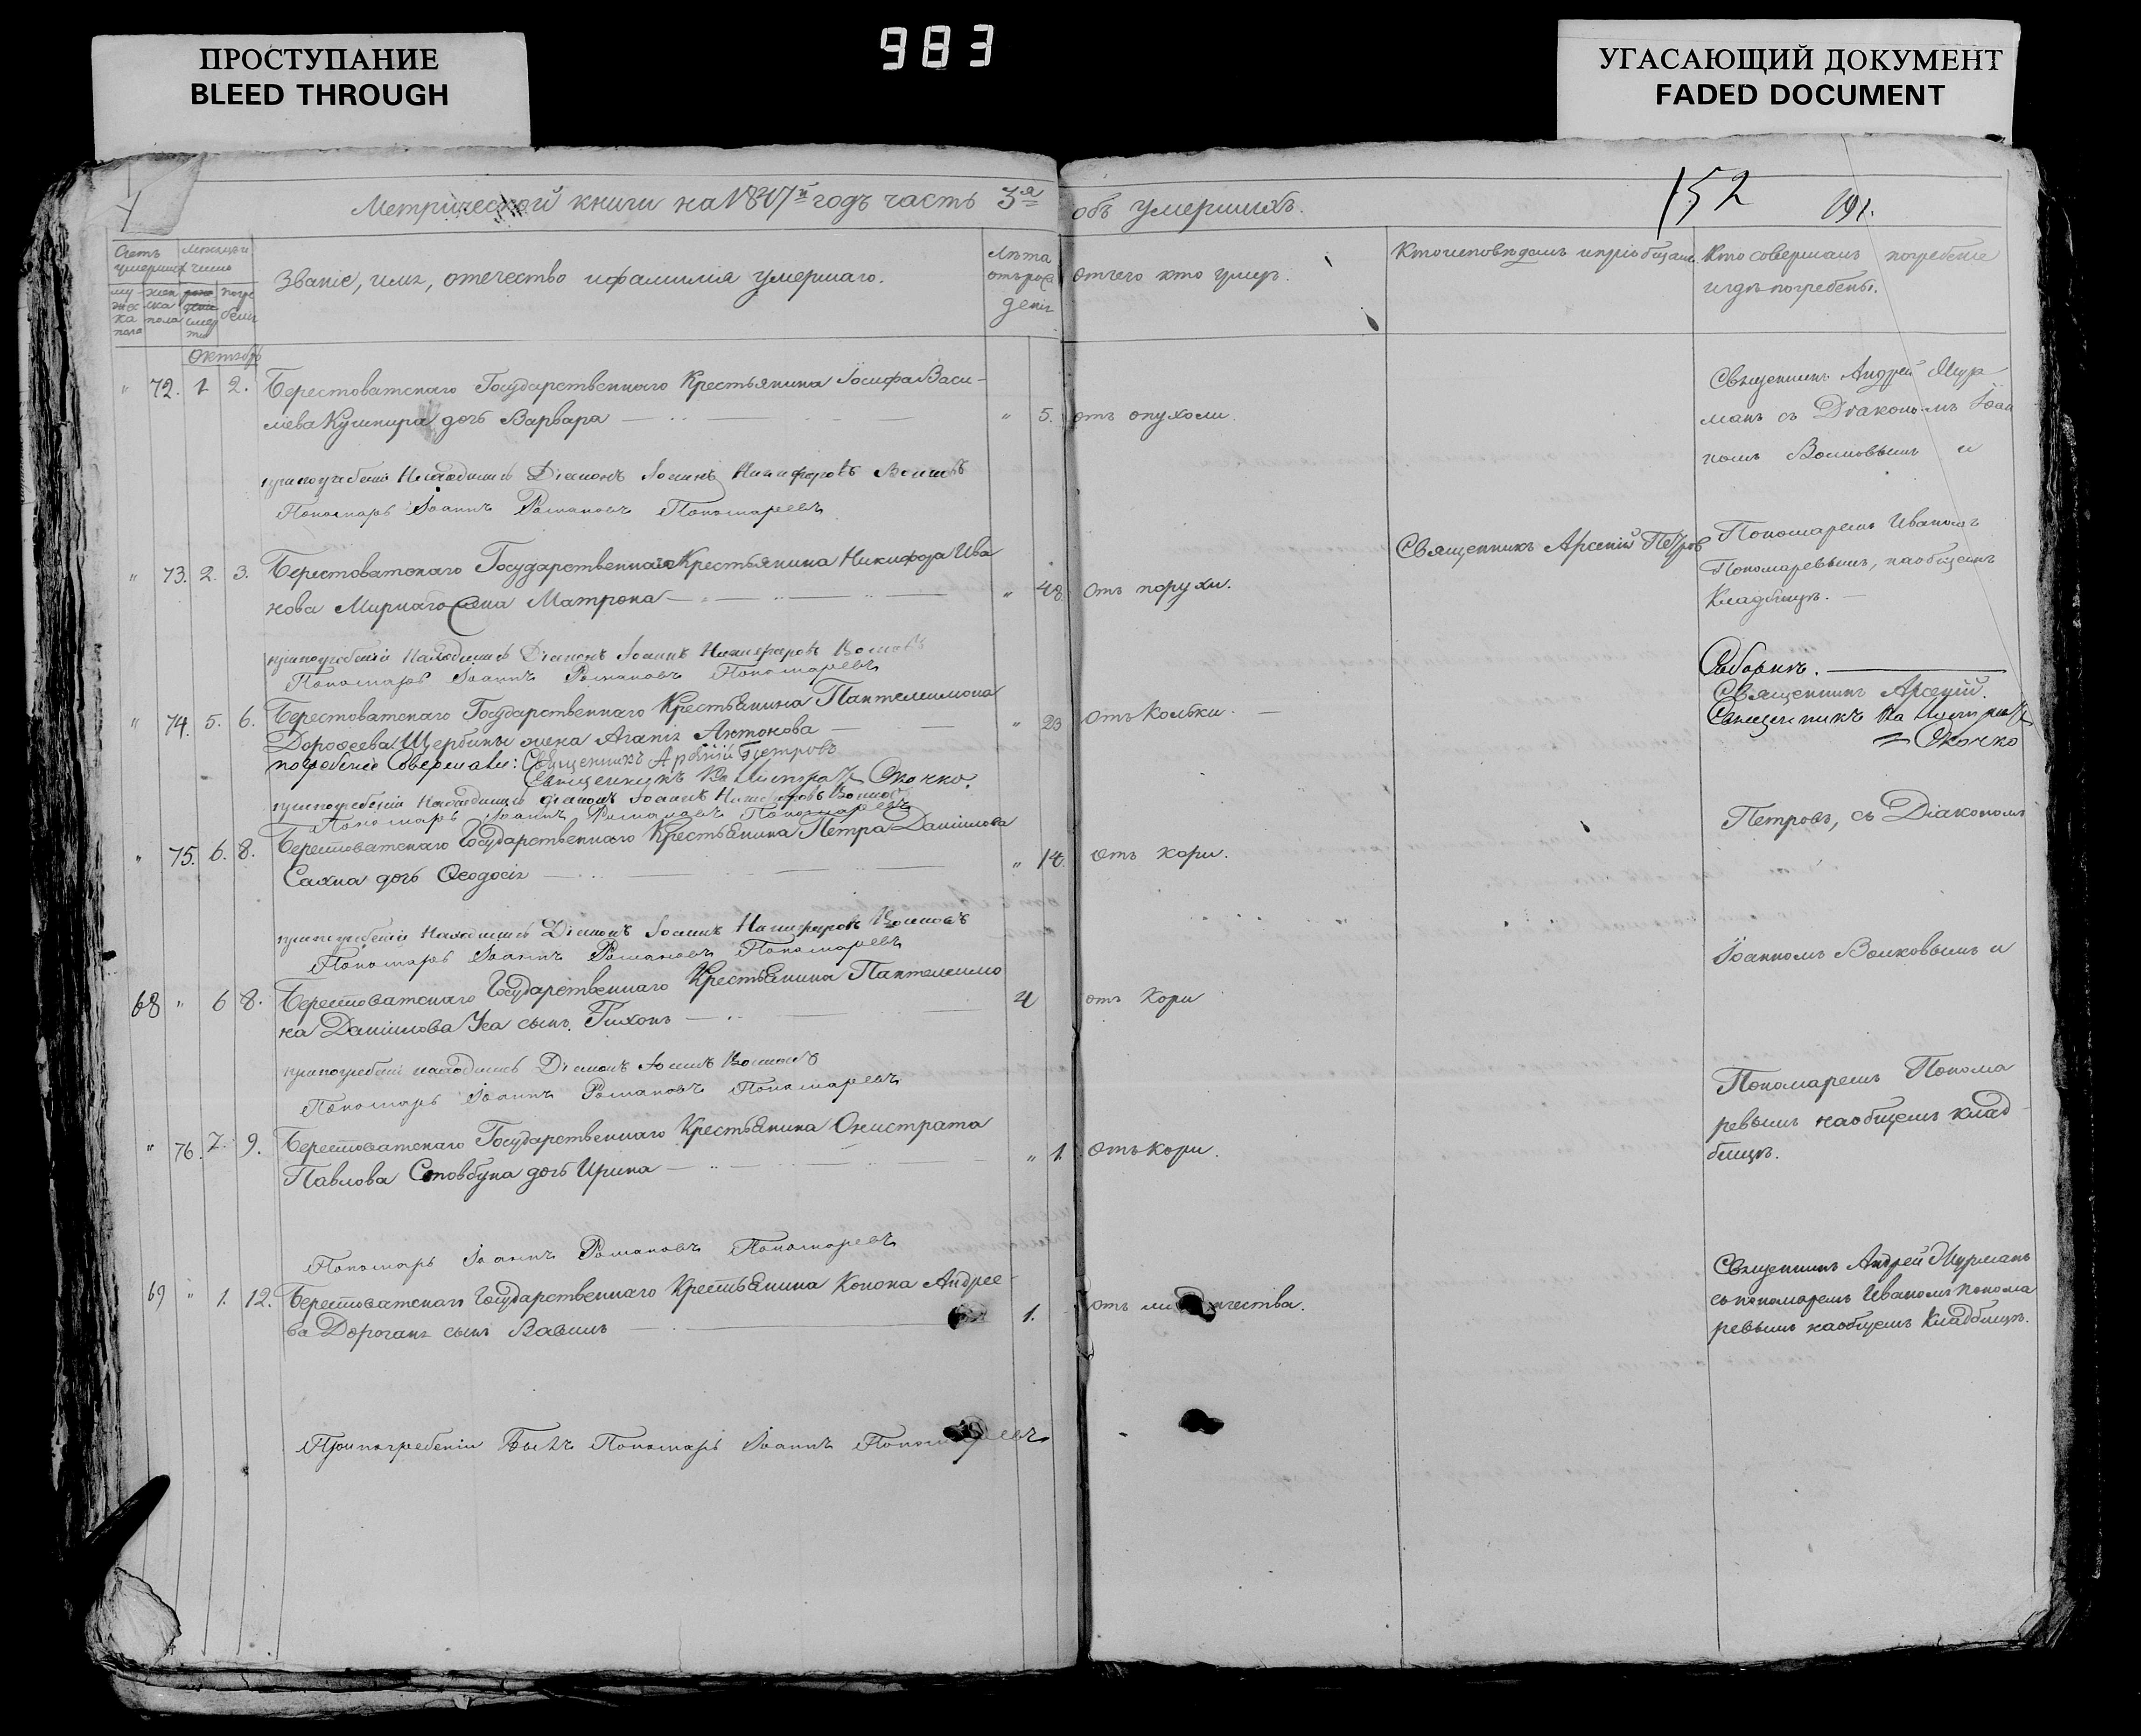 ПРОСТУПАНИЕ
BLEED THROUGH
983
УГАСАЮЩИЙ ДОКУМЕНТ
FADED DOCUMENT
Метрической книги на 1847й годъ часть 3я
объ умершихъ.
152
191.
Счетъ умершихъ
Месяцъ и число
Званіе, имя, отечество и фамилія умершаго.
Лѣта отъ рожденія
отчего кто умеръ.
Кто исповѣдалъ и пріобщалъ
Кто совершалъ погребеніе
и гдѣ погребены.
Октябрь
" 72. 1 2. Берестоватскаго Государственнаго Крестьянина Іосифа Васи-
лева Кушнира дочь Варвара " 5. отъ опухоли.
Священникъ Андрей Мур
манъ съ Діакономъ Іоан
номъ Волковымъ и
при погребеніи Находились Діаконъ Іоаннъ Никифоровъ Волковъ
Пономарь Іоаннъ Романовъ Пономаревъ
" 73. 2. 3. Берестоватскаго Государственнаго Крестьянина Никифора Ива
нова Мирнаго жена Матрона " 48. отъ порухи.
Священникъ Арсеній Петров
Пономаремъ Иваномъ
Пономаревымъ, на общемъ
Кладбищѣ.
при погребеніи Находились Діаконъ Іоаннъ Никифоровъ Волковъ
Пономарь Іоаннъ Романовъ Пономаревъ
" 74. 5. 6. Берестоватскаго Государственнаго Крестьянина Пантелеимона
Дорофеева Щербины жена Агапія Антонова " 23 отъ Кольки.
Соборнъ.
Священникъ Арсеній.
Священникъ
Окочко
погребеніе Совершали: Священникъ Арсеній Петровъ
Священникъ Окочко.
при погребеніи Находились діаконъ Іоаннъ Никифоровъ Волковъ
Пономарь Іоаннъ Романовъ Пономаревъ
" 75. 6. 8. Берестоватскаго Государственнаго Крестьянина Петра Даніилова
Сахна дочь Ѳеодосія " 14. отъ кори.
Петровъ, съ Діакономъ
при погребеніи Находились Діаконъ Іоаннъ Никифоровъ Волковъ
Пономарь Іоаннъ Романовъ Пономаревъ
Іоанномъ Волковымъ и
68 " 6 8. Берестоватскаго Государственнаго Крестьянина Пантелеимо
на Даніилова Уса сынъ Тихонъ 4 отъ Кори
при погребеніи находились Діаконъ Іоаннъ Волковъ
Пономарь Іоаннъ Романовъ Пономаревъ
Пономаремъ Понома
ревымъ на общемъ клад
бищѣ.
" 76. 7. 9. Берестоватскаго Государственнаго Крестьянина Онистрата
Павлова Стовбуна дочь Ирина " 1. отъ кори.
Пономарь Іоаннъ Романовъ Пономаревъ
69 " 1. 12. Берестоватскаго Государственнаго Крестьянина Конона Андрее-
ва Дороганя сынъ Вавилъ 1.
Священникъ Андрей Мурманъ
съ пономаремъ Иваномъ Понома
ревымъ на общемъ Кладбищѣ.
При погребеніи Былъ Пономарь Іоаннъ Пономаревъ